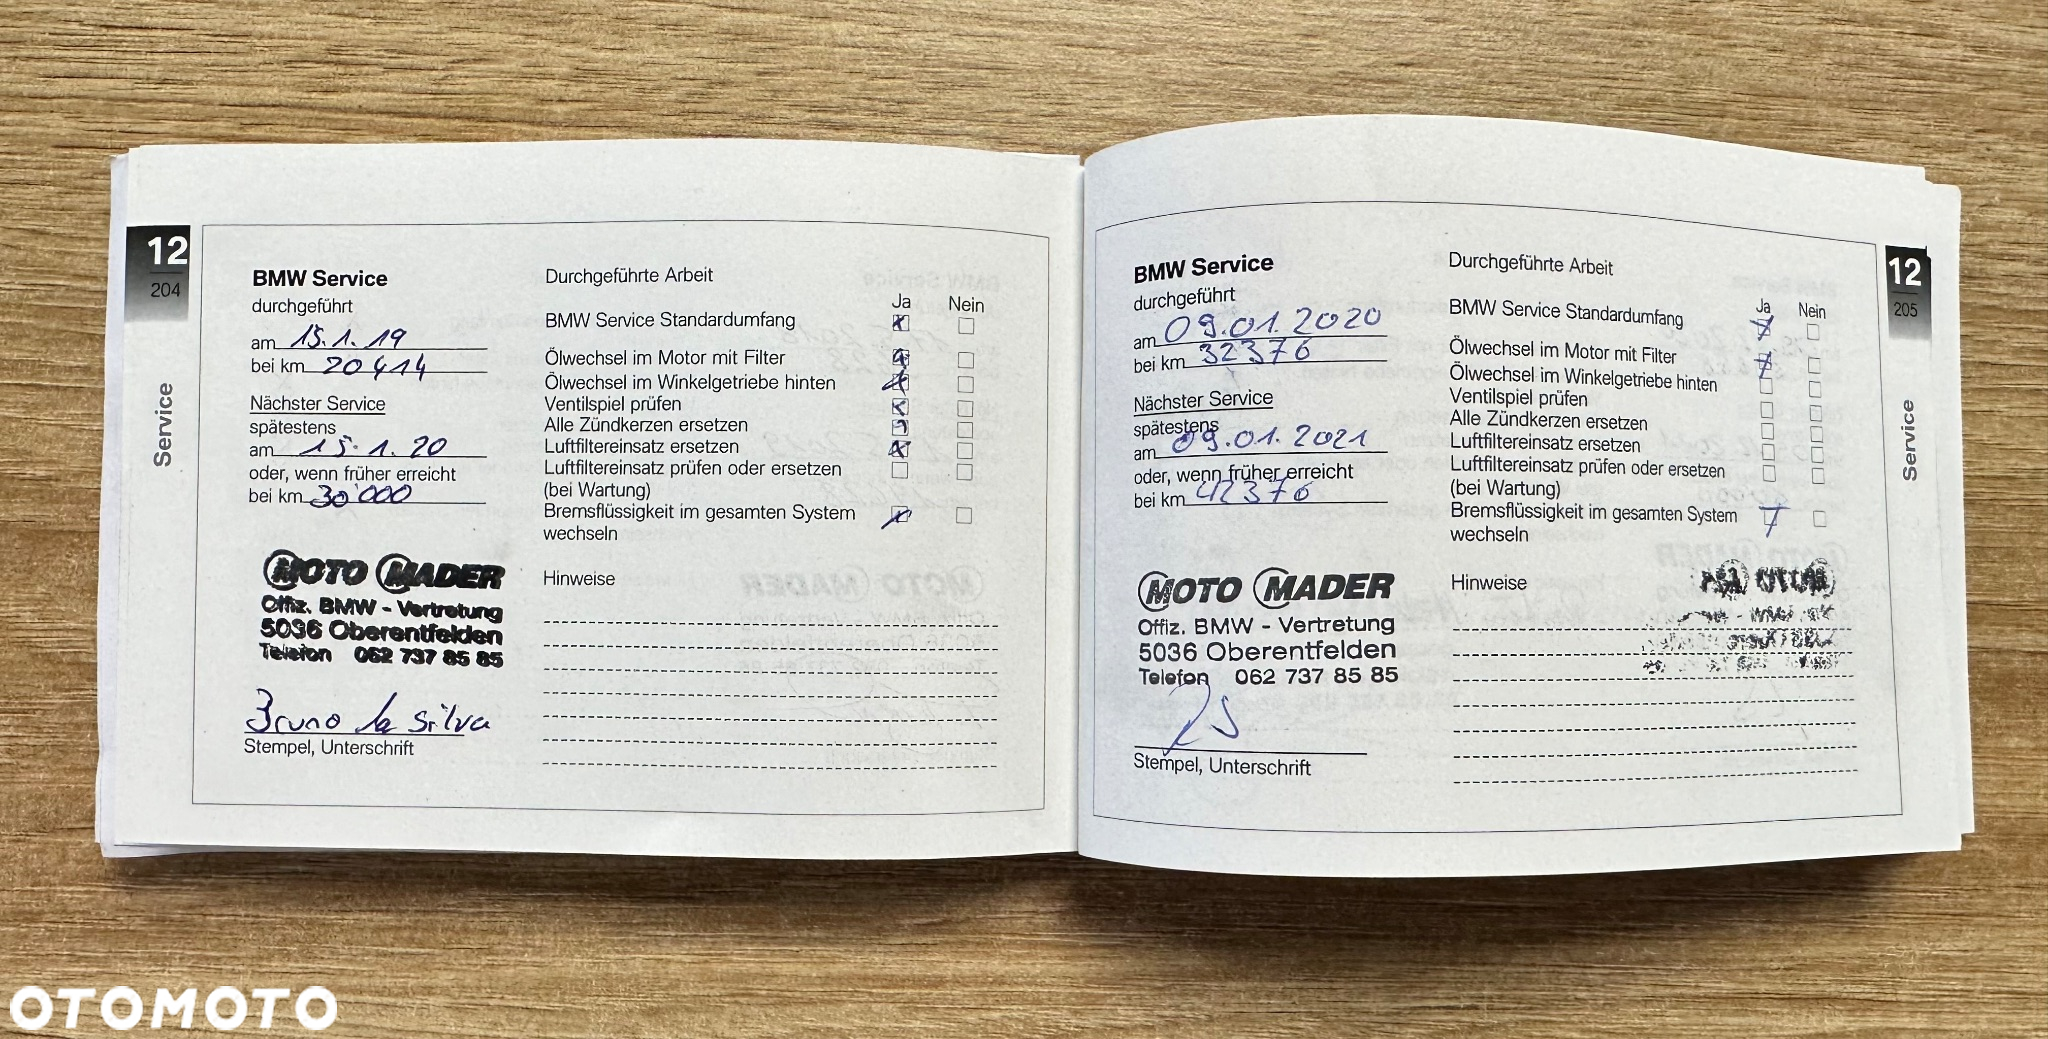 12
204
Service
BMW Service
durchgeführt
am 15.1.19
bei km 20414
Nächster Service
spätestens
am 15.1.20
oder, wenn früher erreicht
bei km 30'000
MOTO MADER
Offiz. BMW - Vertretung
5036 Oberentfelden
Telefon 062 737 85 85
Bruno da Silva
Stempel, Unterschrift
Durchgeführte Arbeit
Ja Nein
BMW Service Standardumfang
Ölwechsel im Motor mit Filter
Ölwechsel im Winkelgetriebe hinten
Ventilspiel prüfen
Alle Zündkerzen ersetzen
Luftfiltereinsatz ersetzen
Luftfiltereinsatz prüfen oder ersetzen
(bei Wartung)
Bremsflüssigkeit im gesamten System
wechseln
Hinweise
BMW Service
durchgeführt
am 09.01.2020
bei km 32376
Nächster Service
spätestens
am 09.01.2021
oder, wenn früher erreicht
bei km 42376
MOTO MADER
Offiz. BMW - Vertretung
5036 Oberentfelden
Telefon 062 737 85 85
Stempel, Unterschrift
Durchgeführte Arbeit
Ja Nein
BMW Service Standardumfang
Ölwechsel im Motor mit Filter
Ölwechsel im Winkelgetriebe hinten
Ventilspiel prüfen
Alle Zündkerzen ersetzen
Luftfiltereinsatz ersetzen
Luftfiltereinsatz prüfen oder ersetzen
(bei Wartung)
Bremsflüssigkeit im gesamten System
wechseln
Hinweise
12
205
Service
OTOMOTO